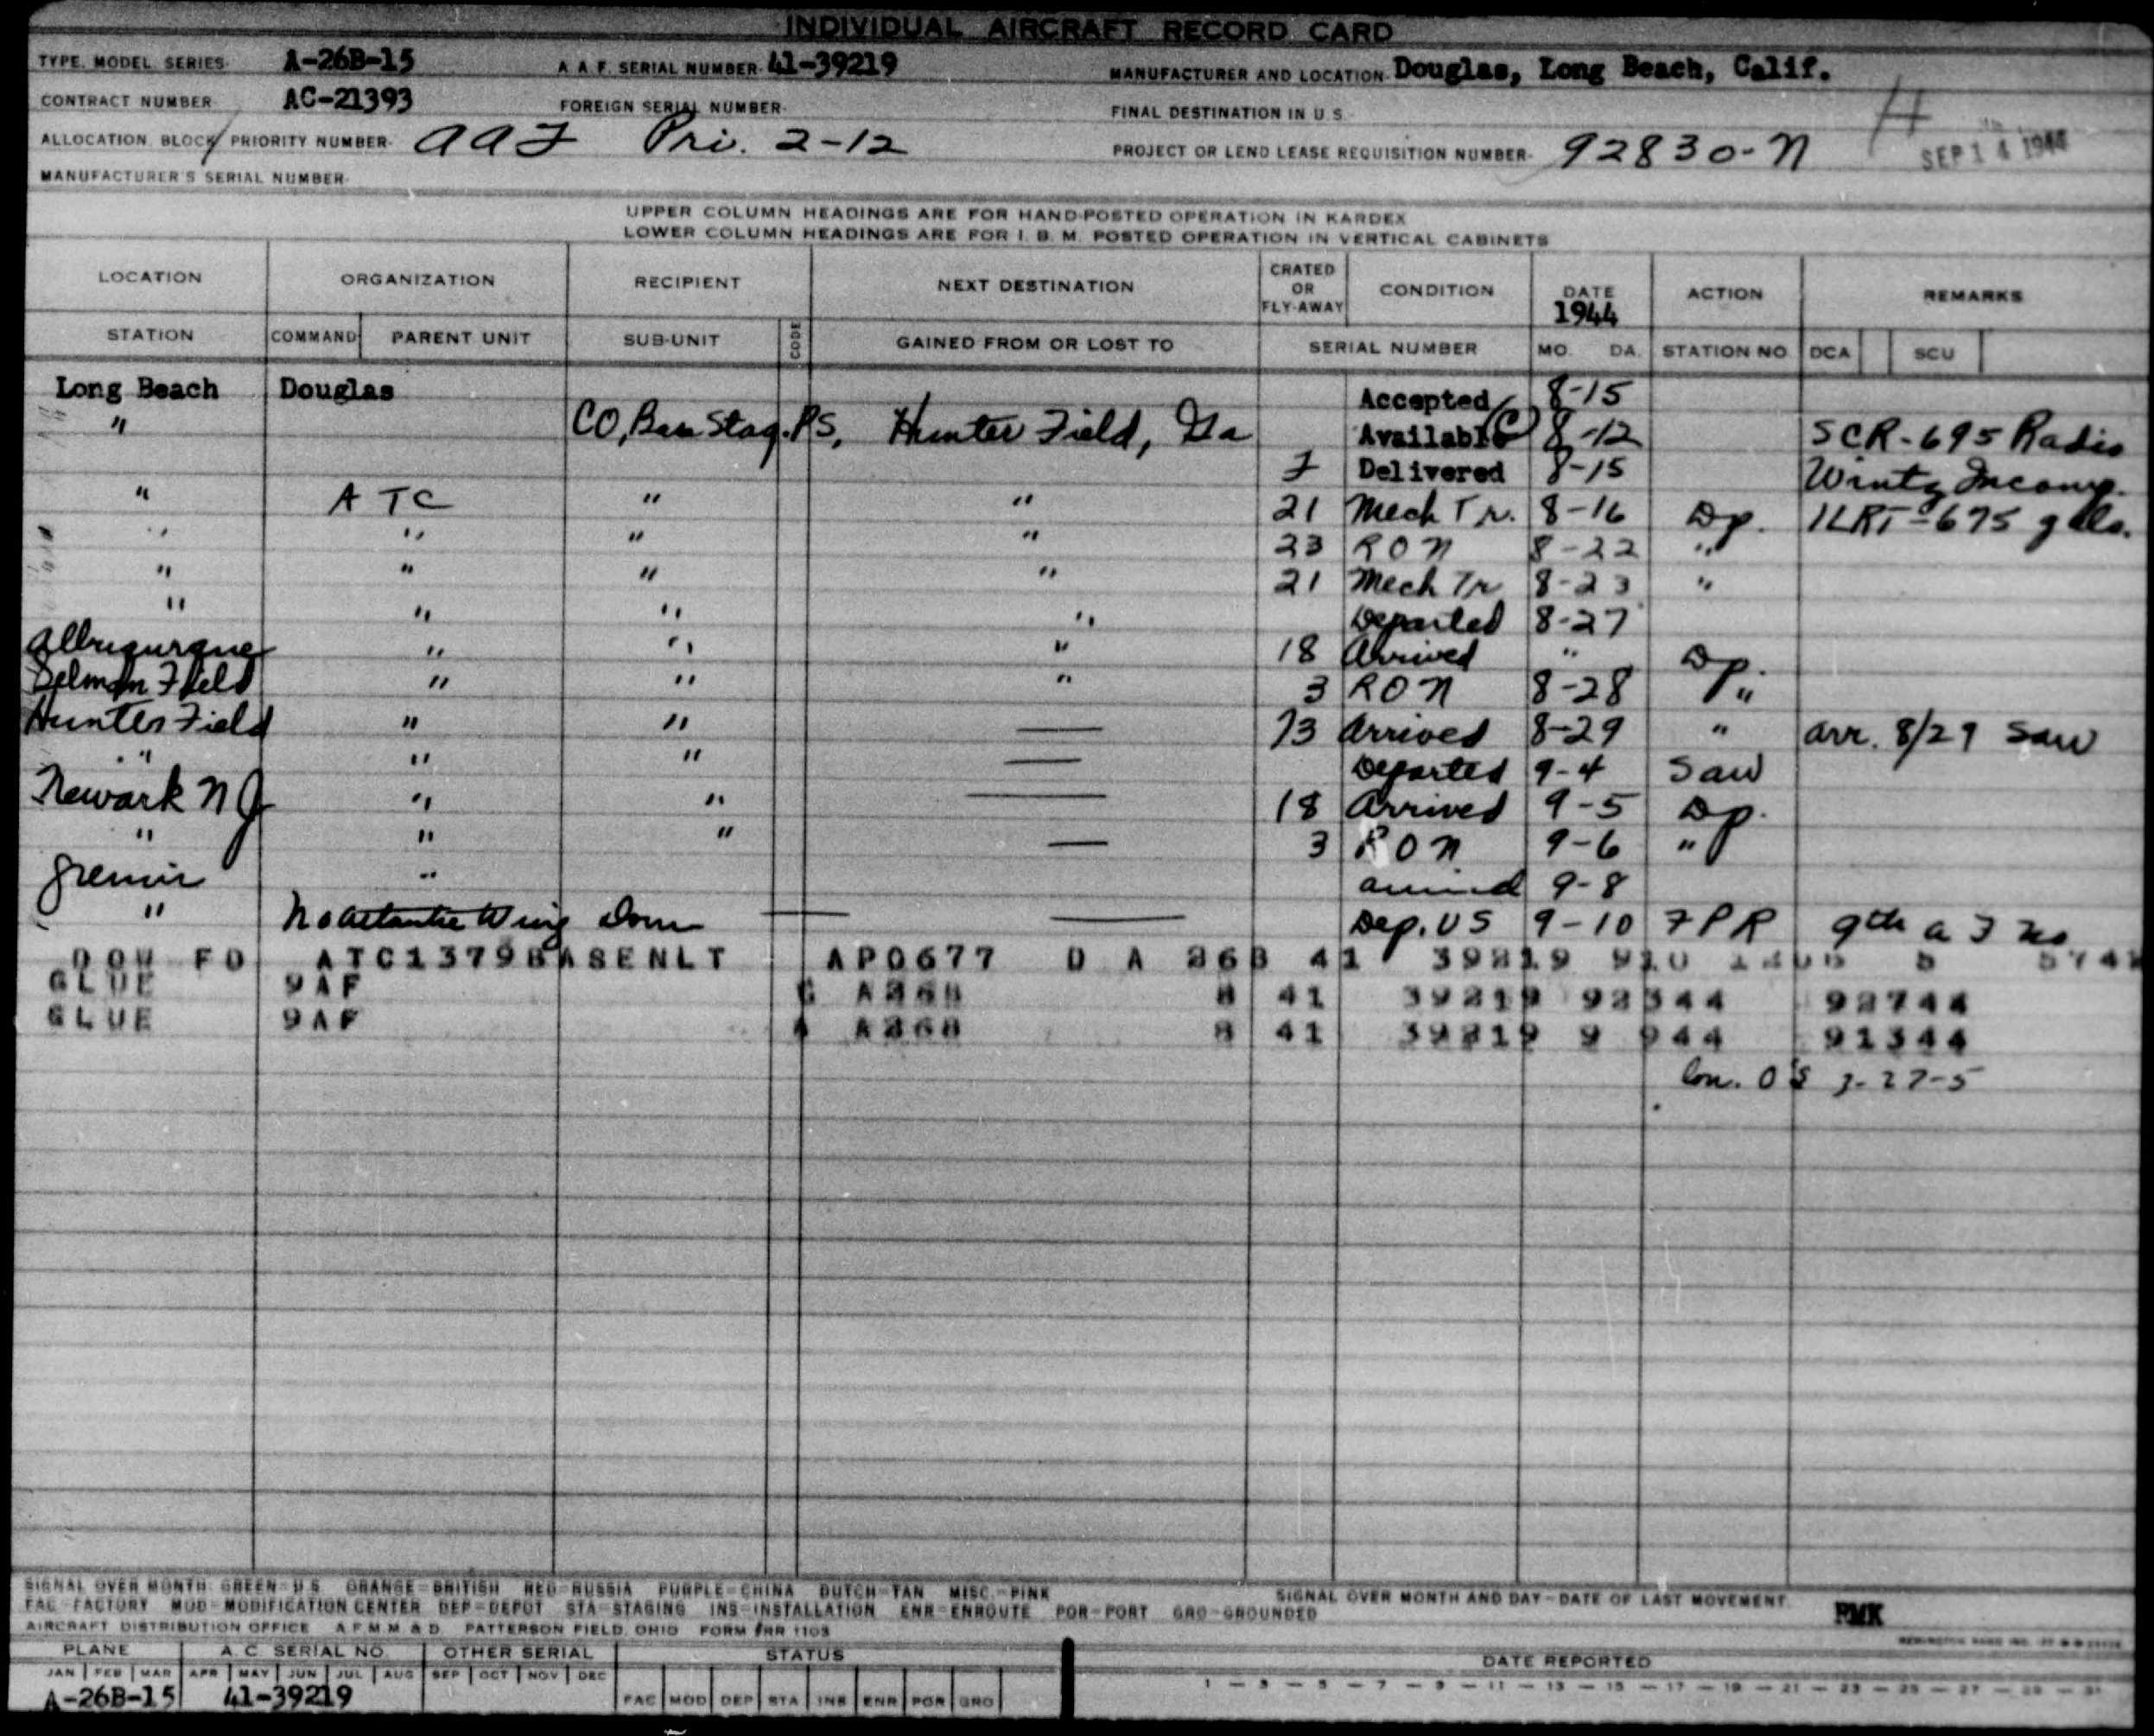 INDIVIDUAL AIRCRAFT RECORD CARD
TYPE, MODEL, SERIES- A-26B-15 A.A.F. SERIAL NUMBER- 41-39219 MANUFACTURER AND LOCATION- Douglas, Long Beach, Calif.
CONTRACT NUMBER AC-21393 FOREIGN SERIAL NUMBER- FINAL DESTINATION IN U.S.
ALLOCATION, BLOCK/ PRIORITY NUMBER- AAF Pri. 2-12 PROJECT OR LEND LEASE REQUISITION NUMBER- 92830-N H SEP 14 1944
MANUFACTURER'S SERIAL NUMBER-
UPPER COLUMN HEADINGS ARE FOR HAND-POSTED OPERATION IN KARDEX
LOWER COLUMN HEADINGS ARE FOR I. B. M. POSTED OPERATION IN VERTICAL CABINETS
LOCATION ORGANIZATION RECIPIENT NEXT DESTINATION CRATED OR FLY-AWAY CONDITION DATE 1944 ACTION REMARKS
STATION COMMAND PARENT UNIT SUB-UNIT CODE GAINED FROM OR LOST TO SERIAL NUMBER MO. DA. STATION NO. DCA SCU
Long Beach Douglas Accepted 8-15
" CO, Base Stag. PS, Hunter Field, Ga Available (C) 8-12 SCR-695 Radio
F Delivered 8-15 Wintz Incomp.
" ATC " " 21 Mech Tr. 8-16 Dp. 1LRT-675 gals.
" " " " 23 RON 8-22 "
" " " " 21 Mech Tr 8-23 "
" " " " Departed 8-27
Albuquerque " " " 18 Arrived " Dp.
Selman Field " " " 3 RON 8-28 "
Hunter Field " " — 13 Arrived 8-29 " arr. 8/29 Saw
" " " — Departed 9-4 Saw
Newark NJ " " — 18 Arrived 9-5 Dp.
" " " — 3 RON 9-6 "
Grenier " arrived 9-8
" No Atlantic Wing Dom — — Dep. US 9-10 FPR 9th AF
DOW FD ATC1379BASENLT APO677 D A 26B 41 39219 910
GLUE 9AF A26B 41 39219 92344 92744
GLUE 9AF A26B 41 39219 9 944 91344
Con. O'S 3-27-5
SIGNAL OVER MONTH: GREEN=U.S. ORANGE=BRITISH RED=RUSSIA PURPLE=CHINA DUTCH=TAN MISC.=PINK
FAC=FACTORY MOD=MODIFICATION CENTER DEP=DEPOT STA=STAGING INS=INSTALLATION ENR=ENROUTE POR=PORT GRO=GROUNDED
SIGNAL OVER MONTH AND DAY-DATE OF LAST MOVEMENT.
AIRCRAFT DISTRIBUTION OFFICE A.F.M.M & D. PATTERSON FIELD, OHIO FORM #RR 1103
PMK
PLANE A. C. SERIAL NO. OTHER SERIAL STATUS DATE REPORTED
JAN FEB MAR APR MAY JUN JUL AUG SEP OCT NOV DEC
A-26B-15 41-39219 FAC MOD DEP STA INS ENR POR GRO
1 — 3 — 5 — 7 — 9 — 11 — 13 — 15 — 17 — 19 — 21 — 23 — 25 — 27 — 29 — 31